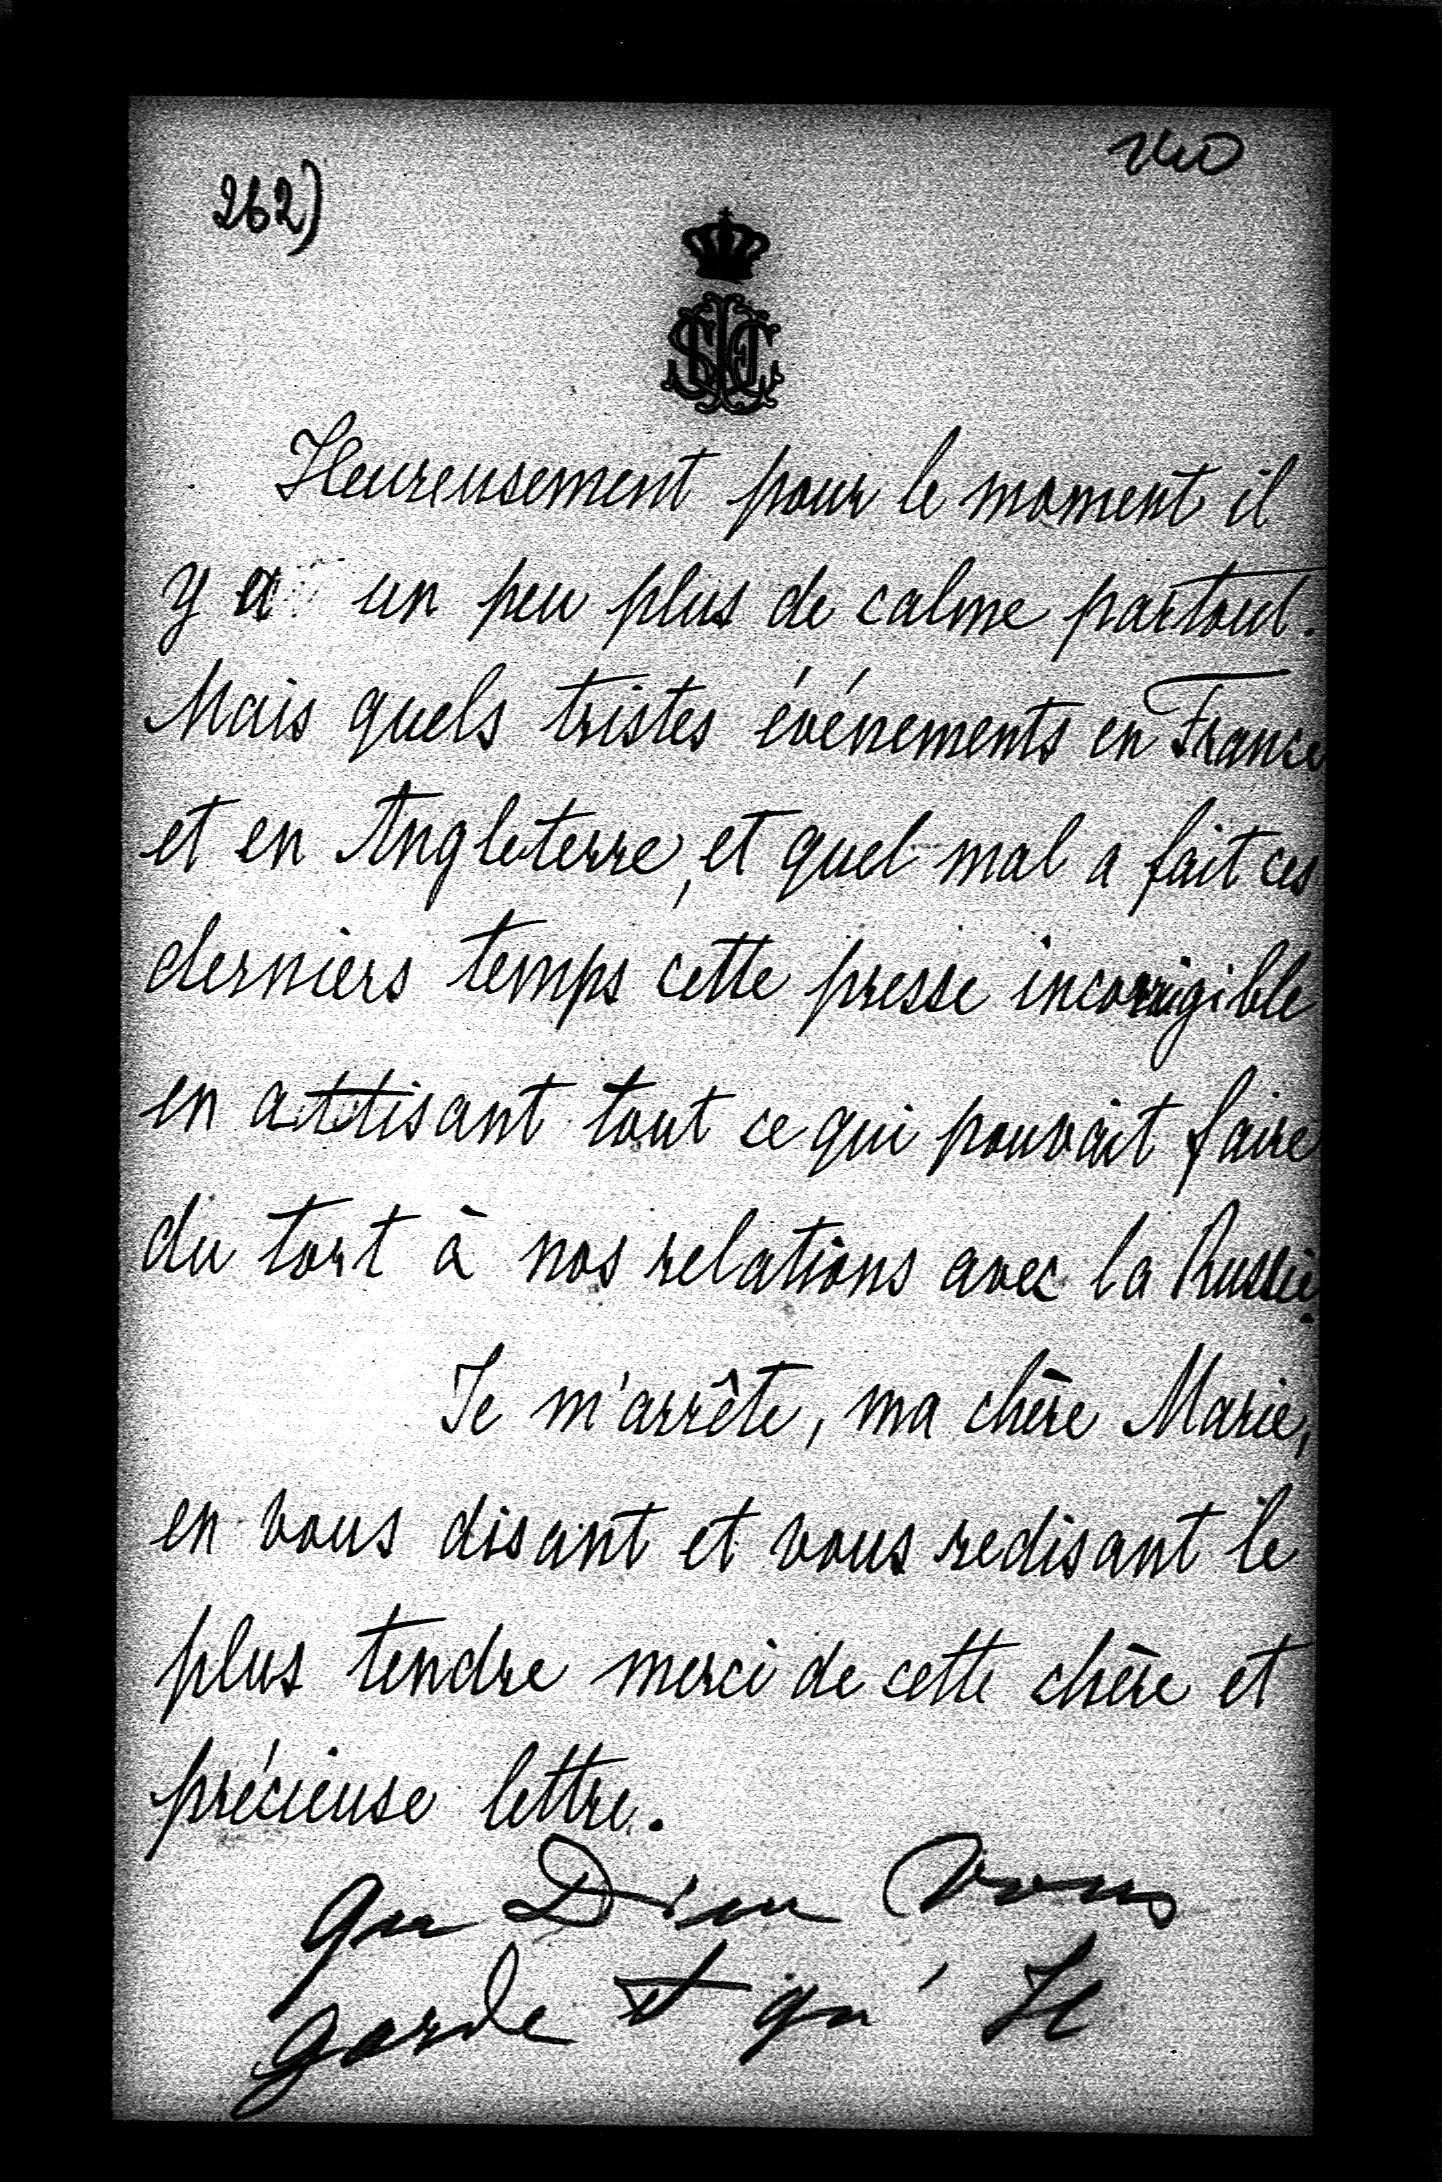 140
262)
Heureusement pour le moment il
y a un peu plus de calme partout.
Mais quels tristes événements en France
et en Angleterre, et quel mal a fait ces
derniers temps cette presse incorrigible
en attisant tout ce qui pouvait faire
du tort à nos relations avec la Russie.
Je m'arrête, ma chère Marie,
en vous disant et vous redisant le
plus tendre merci de cette chère et
précieuse lettre.
que Dieu Vous
garde et qu'Il